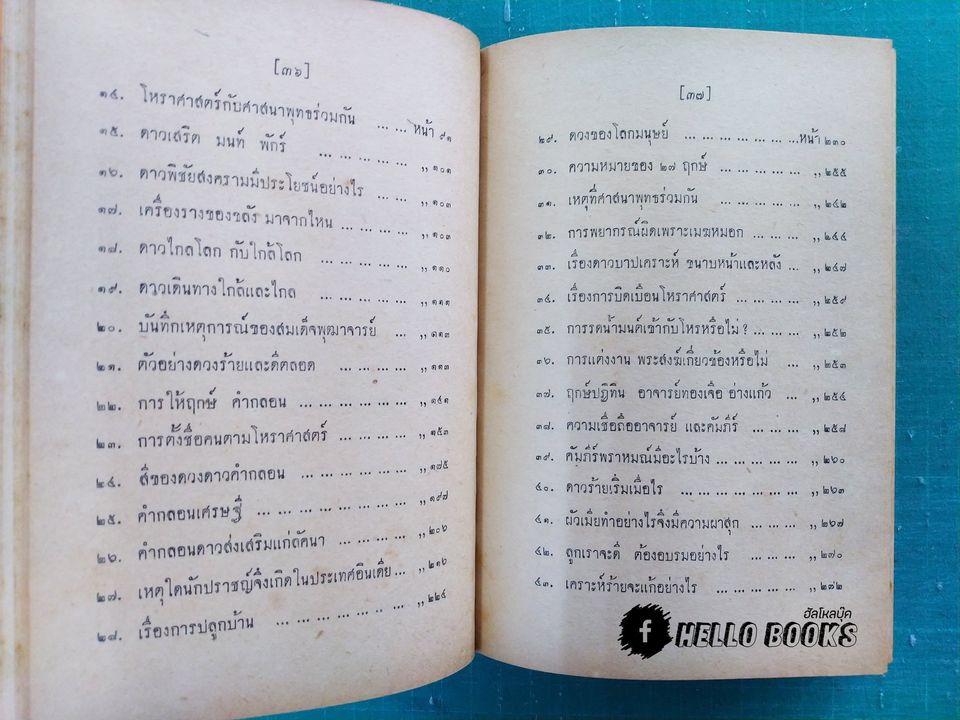 [๓๖]
๑๔. โหราศาสตร์กับศาสนาพุทธร่วมกัน ... ... หน้า ๙๑
๑๕. ดาวเสริด มนท์ พักร์ ... ... ... ... ... ,, ๑๐๑
๑๖. ดาวพิชัยสงครามมีประโยชน์อย่างไร ... ... ... ,, ๑๐๓
๑๗. เครื่องรางของขลัง มาจากไหน ... ... ... ... ,, ๑๐๓
๑๘. ดาวไกลโลก กับใกล้โลก ... ... ... ... ... ,, ๑๑๐
๑๙. ดาวเดินทางใกล้และไกล ... ... ... ... ... ,, ๑๑๑
๒๐. บันทึกเหตุการณ์ของสมเด็จพุฒาจารย์ ... ,, ๑๑๓
๒๑. ตัวอย่างดวงร้ายและดีตลอด ... ... ... ... ,, ๑๑๓
๒๒. การให้ฤกษ์ คำกลอน ... ... ... ... ... ... ,, ๑๔๑
๒๓. การตั้งชื่อคนตามโหราศาสตร์ ... ... ... ... ,, ๑๕๓
๒๔. สีของดวงดาวคำกลอน ... ... ... ... ... ,, ๑๗๕
๒๕. คำกลอนเศรษฐี ... ... ... ... ... ... ... ,, ๑๙๗
๒๖. คำกลอนดาวส่งเสริมแก่ลัคนา ... ... ... ... ,, ๒๐๖
๒๗. เหตุใดนักปราชญ์จึงเกิดในประเทศอินเดีย ... ,, ๒๑๖
๒๘. เรื่องการปลูกบ้าน ... ... ... ... ... .. ... ,, ๒๒๔
[๓๗]
๒๙. ดวงของโลกมนุษย์ ... ... ... ... ... ...หน้า ๒๓๐
๓๐. ความหมายของ ๒๗ ฤกษ์ ... ... ... ... ... ,, ๒๕๕
๓๑. เหตุที่ศาสนาพุทธร่วมกัน ... ... ... ... ... ,, ๒๔๒
๓๒. การพยากรณ์ผิดเพราะเมฆหมอก ... ... ... ,, ๒๔๔
๓๓. เรื่องดาวบาปเคราะห์ ขนาบหน้าและหลัง ... ,, ๒๔๗
๓๔. เรื่องการบิดเบือนโหราศาสตร์ ... ... ... ... ,, ๒๕๙
๓๕. การรดน้ำมนต์เข้ากับโหรหรือไม่ ? ... ... ... ,, ๒๕๒
๓๖. การแต่งงาน พระสงฆ์เกี่ยวข้องหรือไม่ ... ... ,, ๒๕๓
๓๗. ฤกษ์ปฏิทิน อาจารย์ทองเจือ อ่างแก้ว ... ,, ๒๕๔
๓๘. ความเชื่อถืออาจารย์ และคัมภีร์ ... ... ... ,, ๒๕๘
๓๙. คัมภีร์พราหมณ์มีอะไรบ้าง ... ... ... ... ... ,, ๒๖๐
๔๐. ดาวร้ายเริ่มเมื่อไร ... ... ... ... ... ... ... ,, ๒๖๓
๔๑. ผัวเมียทำอย่างไรจึงมีความผาสุก ... ... ... ,, ๒๖๗
๔๒. ลูกเราจะดี ต้องอบรมอย่างไร ... ... ... ,, ๒๗๐
๔๓. เคราะห์ร้ายจะแก้อย่างไร ... ... ... ... ... ,, ๒๗๒
ฮัลโหลบุ๊ค
f HELLO BOOKS